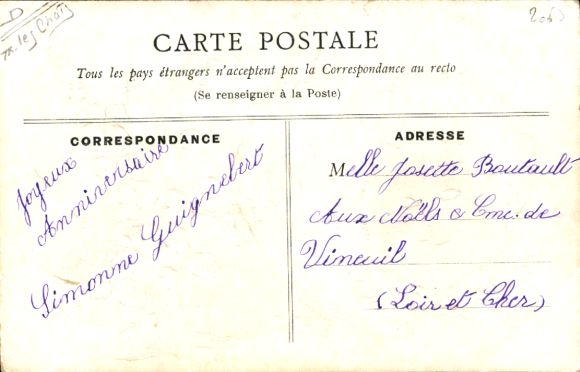 D
2065
CARTE POSTALE
Tous les pays étrangers n'acceptent pas la Correspondance au recto
(Se renseigner à la Poste)
CORRESPONDANCE
Joyeux
Anniversaire
Simonne Guignebert
ADRESSE
Melle Josette Boutault
Aux Noëlls Cme. de
Vineuil
(Loir et Cher)